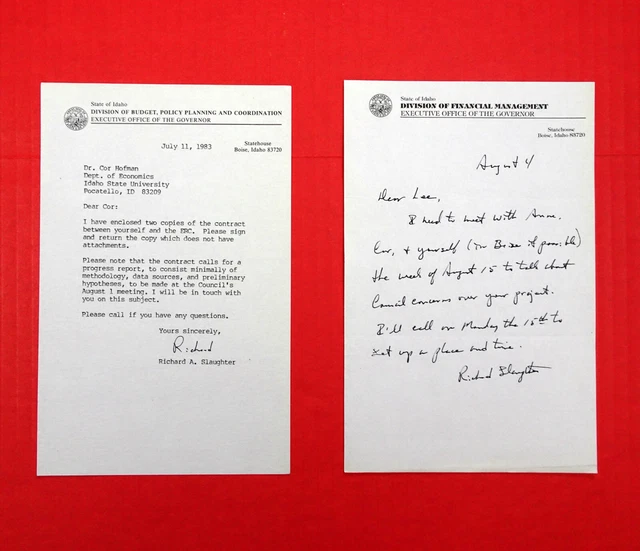 State of Idaho
DIVISION OF BUDGET, POLICY PLANNING AND COORDINATION
EXECUTIVE OFFICE OF THE GOVERNOR
Statehouse
Boise, Idaho 83720
July 11, 1983
Dr. Cor Hofman
Dept. of Economics
Idaho State University
Pocatello, ID 83209
Dear Cor:
I have enclosed two copies of the contract
between yourself and the ERC. Please sign
and return the copy which does not have
attachments.
Please note that the contract calls for a
progress report, to consist minimally of
methodology, data sources, and preliminary
hypotheses, to be made at the Council's
August 1 meeting. I will be in touch with
you on this subject.
Please call if you have any questions.
Yours sincerely,
Richard
Richard A. Slaughter
State of Idaho
DIVISION OF FINANCIAL MANAGEMENT
EXECUTIVE OFFICE OF THE GOVERNOR
Statehouse
Boise, Idaho 83720
August 4
Dear Lee,
I need to meet with Anne,
Cor, & yourself (in Boise if possible)
the week of August 15 to talk about
Council concerns over your project.
I'll call on Monday the 15th to
set up a place and time.
Richard Slaughter